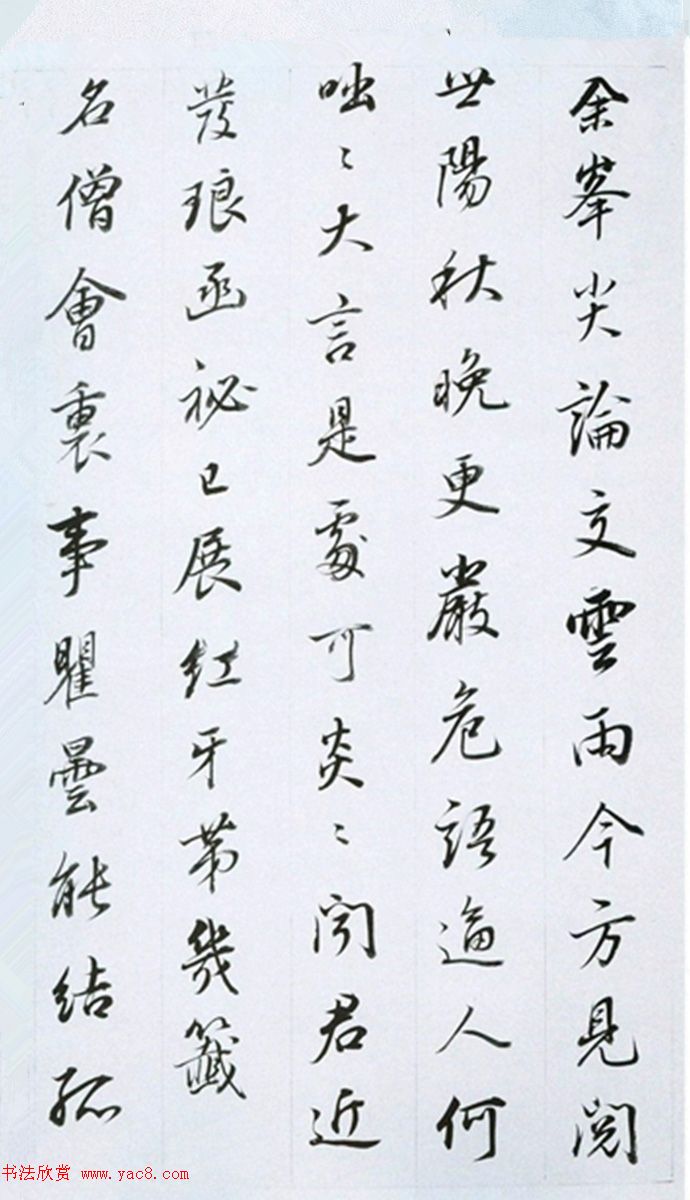 余峯尖論文雲雨今方見閱
世陽秋晚更嚴危語逼人何
咄〻大言是處可炎〻聞君近
發琅函祕已展紅牙第幾籤
名僧會裏事瞿曇能結孤
书法欣赏 www.yac8.com